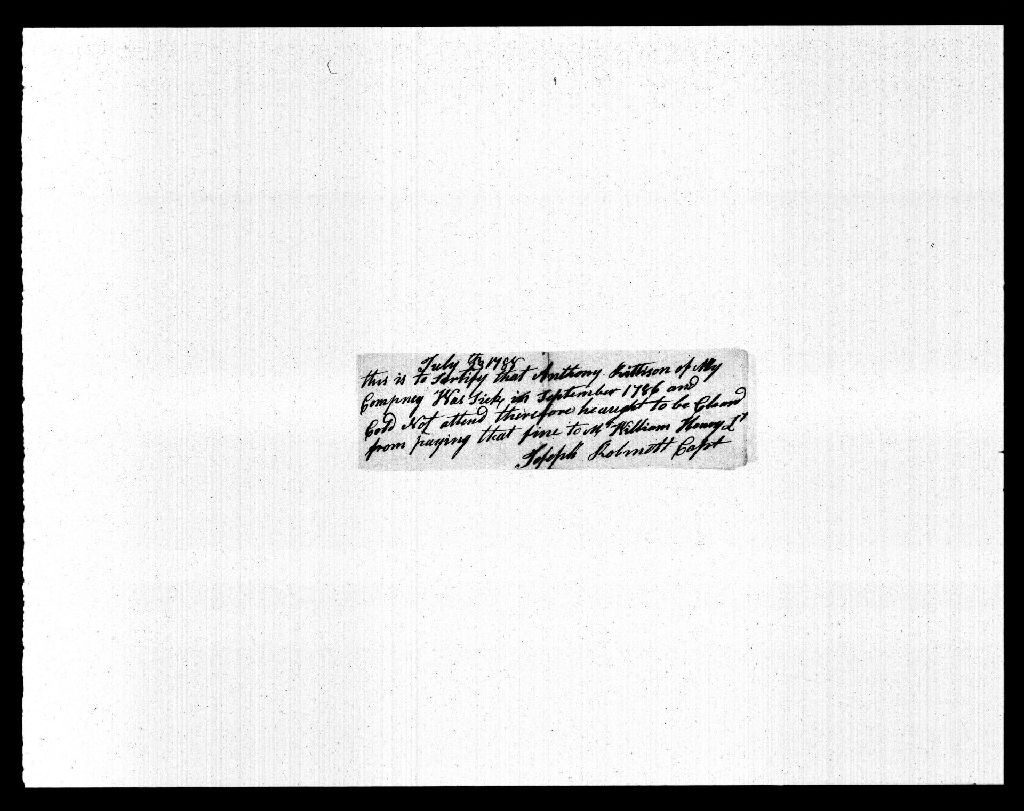 July 1788
this is to Sartify that Anthony of My
Compney Was Sick in September 1786 and
Cold Not attend therefore he aught to be Cleard
from paying that fine to Mr William Henry Lt
Joseph Capt